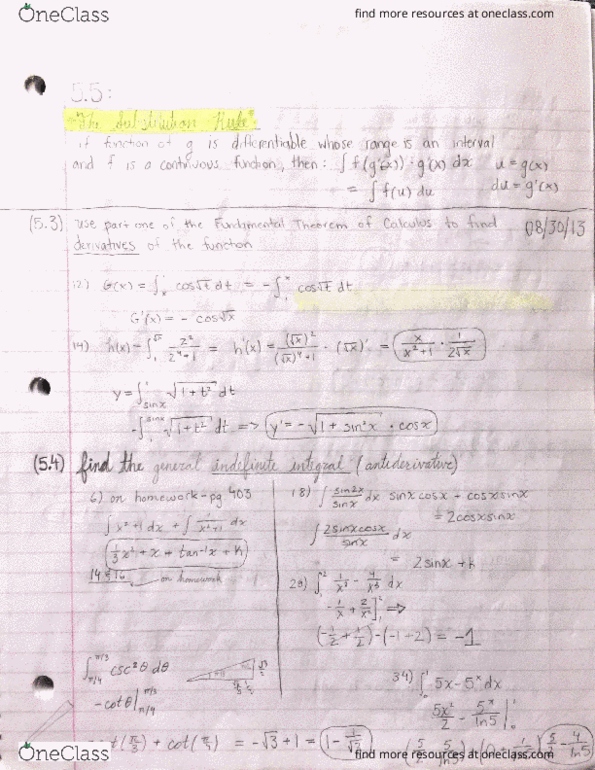 OneClass
find more resources at oneclass.com
5.5:
"The Substitution Rule"
if function of g is differentiable whose range is an interval
and f is a continuous function, then: ∫ f(g'(x)) · g'(x) dx    u = g(x)
= ∫ f(u) du    du = g'(x)
(5.3) use part one of the Fundmental Theorem of Calculus to find    08/30/13
derivatives of the function
12) G(x) = ∫ₓ¹ cos√t dt = -∫₁ˣ cos√t dt
G'(x) = - cos√x
14) h(x) = ∫₁^√x z²/(z⁴+1) = h'(x) = (√x)²/((√x)⁴+1) · (√x)' = x/(x²+1) · 1/(2√x)
y = ∫_sinx^1 √(1+t²) dt
-∫₁^sinx √(1+t²) dt => y' = -√(1+sin²x) · cosx
(5.4) find the general indefinite integral (antiderivative)
6) on homework - pg 403
∫ x²+1 dx + ∫ 1/(x²+1) dx
1/3 x³ + x + tan⁻¹x + k
14 & 16 on homework
18) ∫ sin2x/sinx dx    sinxcosx + cosxsinx
= 2cosxsinx
∫ 2sinxcosx/sinx dx
= 2sinx + k
∫₁² 1/x² - 4/x³ dx
-1/x + 2/x² ]₁² =>
(-1/2 + 1/2) - (-1+2) = -1
∫_π/4^π/3 csc²θ dθ
-cotθ |_π/4^π/3
34) ∫₀¹ 5x - 5ˣ dx
5x²/2 - 5ˣ/ln5 |₀¹
(π/3) + cot(π/4) = -√3 + 1 = 1 - 1/√3
5/2 - 4/ln5
OneClass
find more resources at oneclass.com